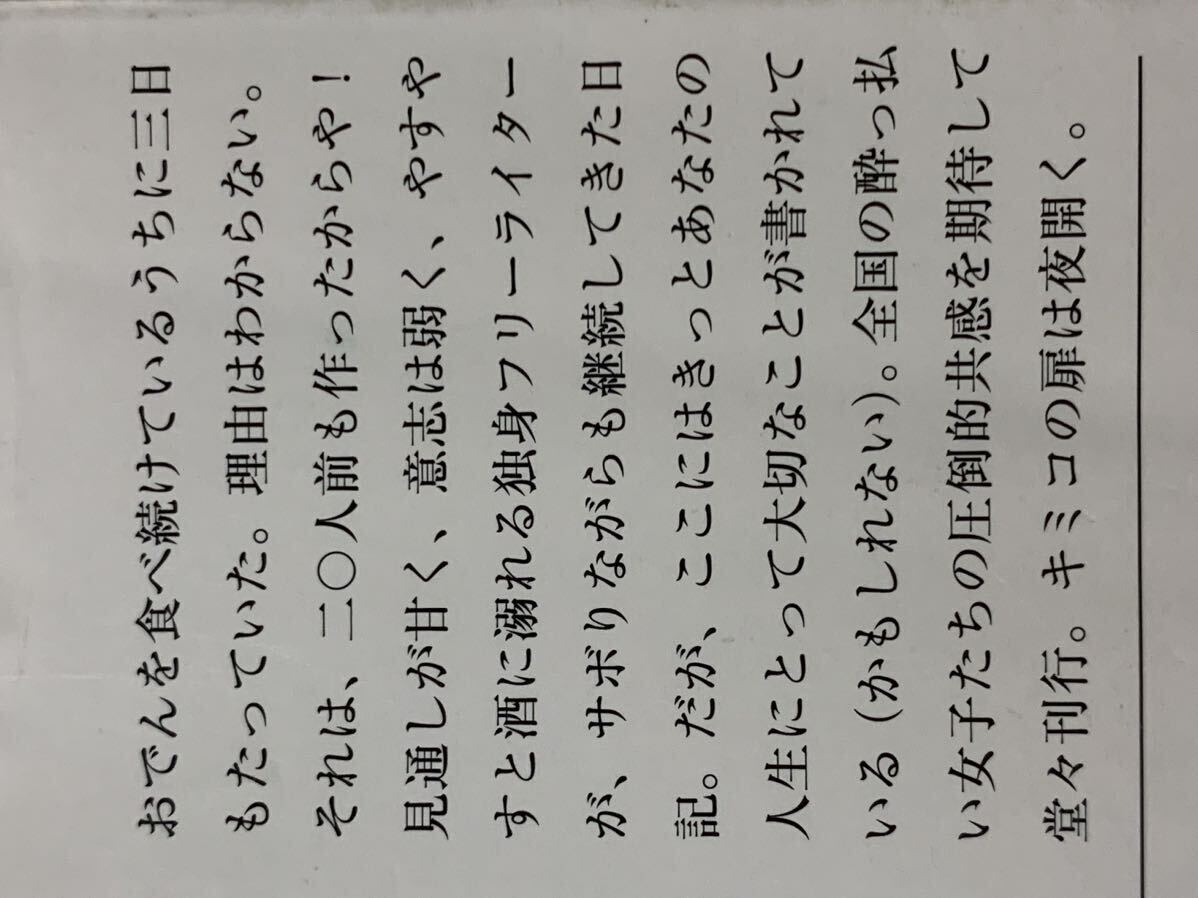 おでんを食べ続けているうちに三日
もたっていた。理由はわからない。
それは、二〇人前も作ったからや！
見通しが甘く、意志は弱く、やすや
すと酒に溺れる独身フリーライター
が、サボりながらも継続してきた日
記。だが、ここにはきっとあなたの
人生にとって大切なことが書かれて
いる（かもしれない）。全国の酔っ払
い女子たちの圧倒的共感を期待して
堂々刊行。キミコの扉は夜開く。